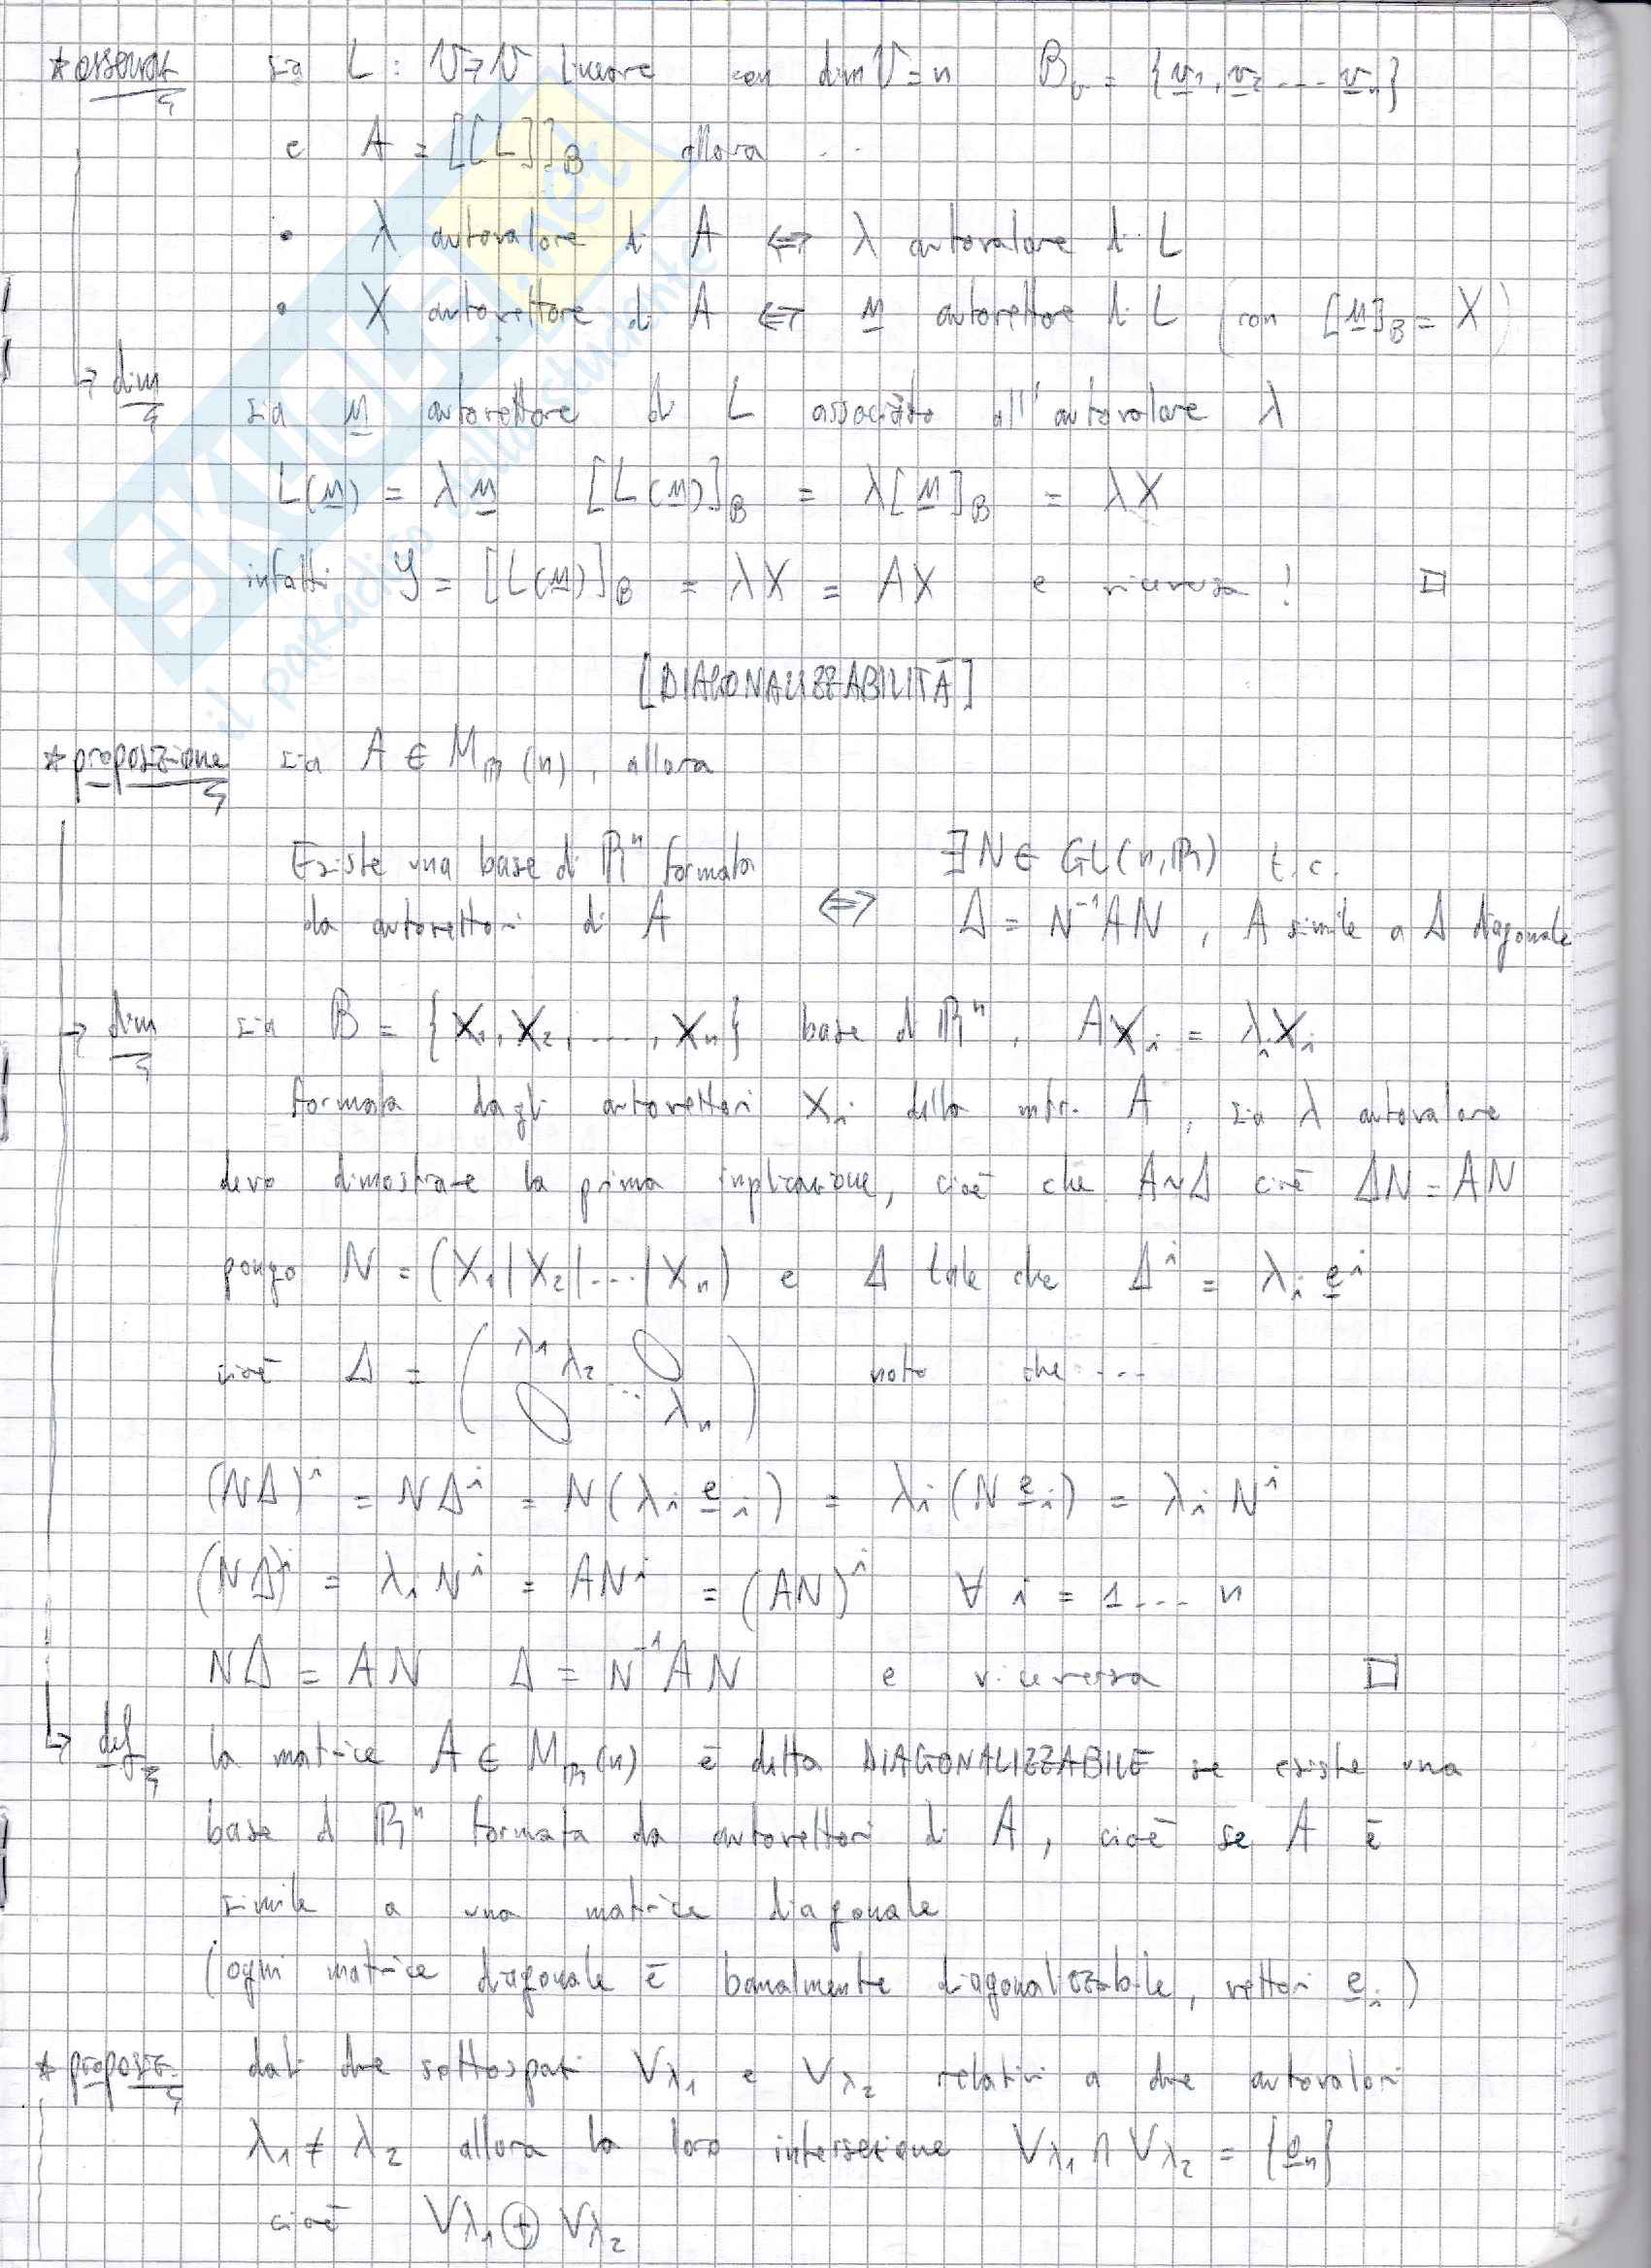 * osservaz sia L : V→V lineare con dim V = n B_v = {v₁, v₂ ... v_n}
e A = [[L]]_B allora ...
• λ autovalore di A ⇔ λ autovalore di L
• X autovettore di A ⇔ u autovettore di L (con [u]_B = X)
→ dim sia u autovettore di L associato all'autovalore λ
L(u) = λu [L(u)]_B = λ[u]_B = λX
infatti Y = [L(u)]_B = λX = AX e viceversa! □
[DIAGONALIZZABILITÀ]
* proposizione sia A ∈ M_ℝ(n), allora
Esiste una base di ℝⁿ formata ∃ N ∈ GL(n,ℝ) t.c.
da autovettori di A ⇔ Δ = N⁻¹AN, A simile a Δ diagonale
→ dim sia B = {X₁, X₂, ..., X_n} base di ℝⁿ, AX_i = λ_iX_i
formata dagli autovettori X_i della mtr. A, sia λ autovalore
devo dimostrare la prima implicazione, cioè che A~Δ cioè ΔN = AN
pongo N = (X₁|X₂|...|X_n) e Δ tale che Δ^i = λ_i e^i
cioè Δ = (λ₁ λ₂ 0 0 ... λ_n) noto che ...
(NΔ)^i = NΔ^i = N(λ_i e_i) = λ_i(N e_i) = λ_i N^i
(NΔ)^i = λ_i N^i = AN^i = (AN)^i ∀ i = 1 ... n
NΔ = AN Δ = N⁻¹AN e viceversa □
↳ def la matrice A ∈ M_ℝ(n) è detta DIAGONALIZZABILE se esiste una
base di ℝⁿ formata da autovettori di A, cioè se A è
simile a una matrice diagonale
(ogni matrice diagonale è banalmente diagonalizzabile, vettori e_i)
* proposiz. dati due sottospazi V_λ₁ e V_λ₂ relativi a due autovalori
λ₁ ≠ λ₂ allora la loro intersezione V_λ₁ ∩ V_λ₂ = {0_n}
cioè V_λ₁ ⊕ V_λ₂
SKUOLA.net
il paradiso dello studente